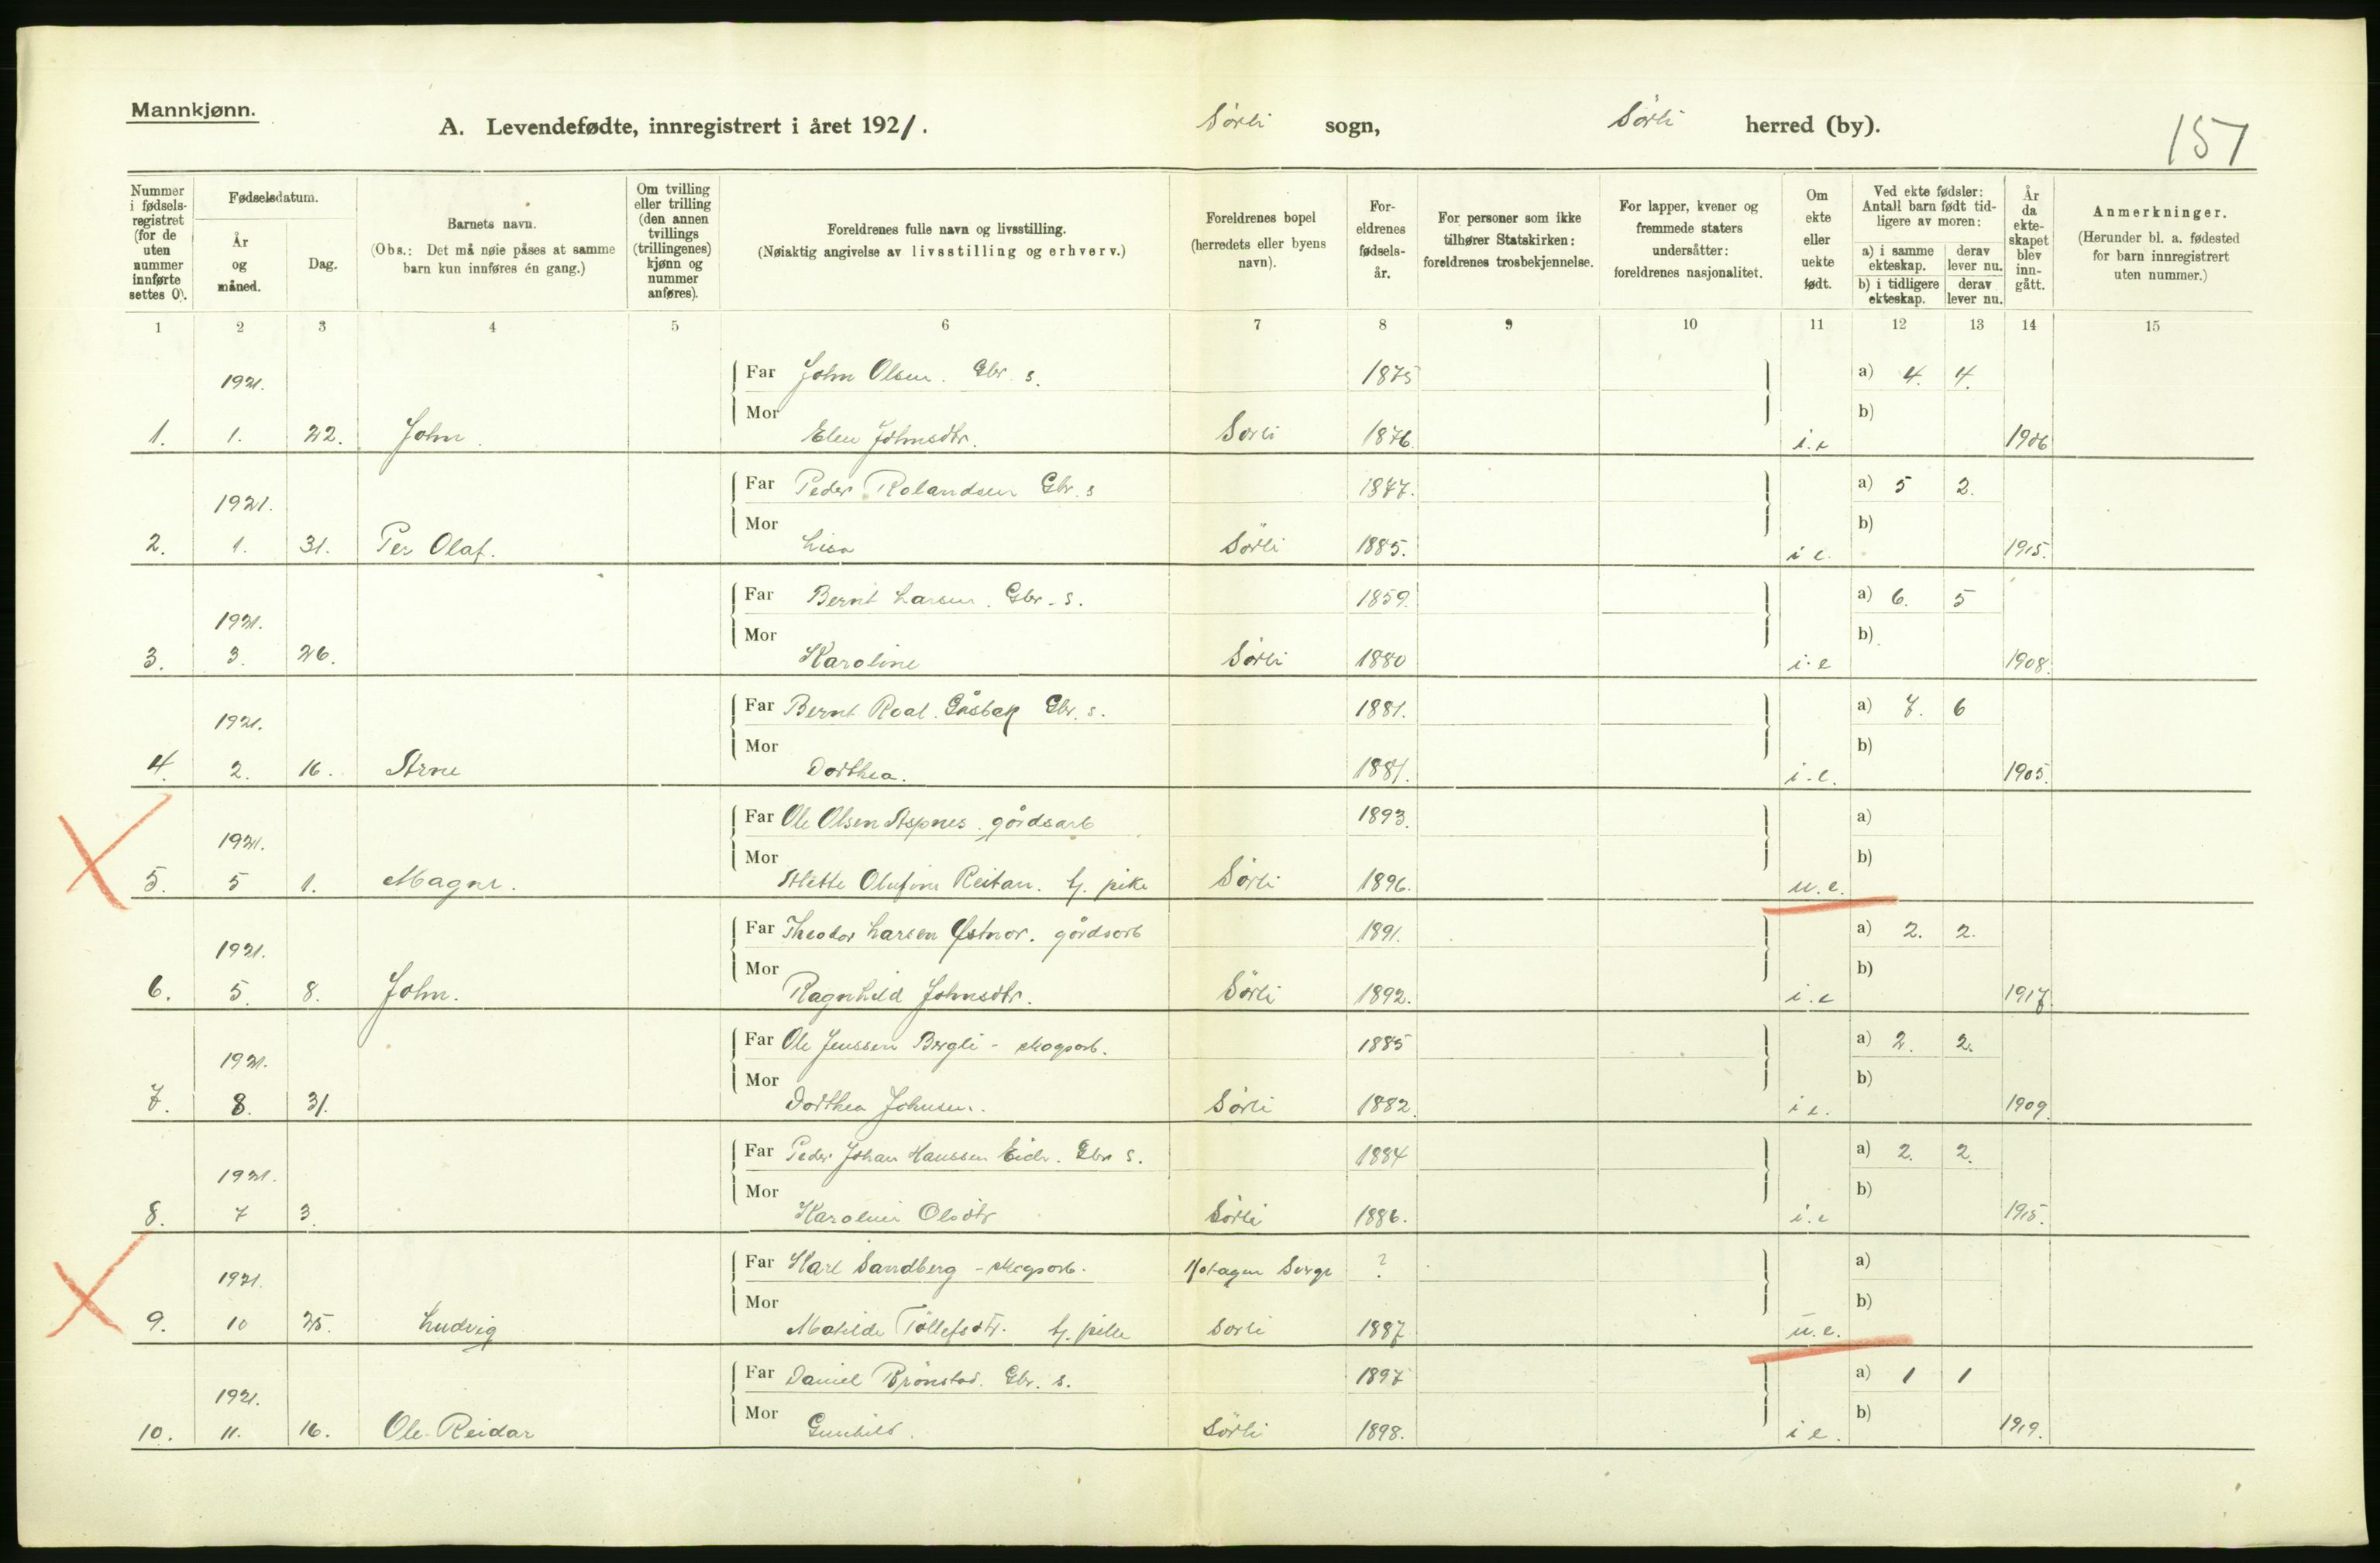 Mannkjønn.
A. Levendefødte, innregistrert i året 1921. Sörli sogn, Sörli herred (by). 151
Nummer i fødselsregistret (for de uten nummer innførte settes 0).
Fødselsdatum.
År og måned.
Dag.
Barnets navn.
(Obs.: Det må nøie påses at samme barn kun innføres én gang.)
Om tvilling eller trilling (den annen tvillings (trillingenes) kjønn og nummer anføres).
Foreldrenes fulle navn og livsstilling.
(Nøiaktig angivelse av livsstilling og erhverv.)
Foreldrenes bopel (herredets eller byens navn).
Foreldrenes fødselsår.
For personer som ikke tilhører Statskirken: foreldrenes trosbekjennelse.
For lapper, kvener og fremmede staters undersåtter: foreldrenes nasjonalitet.
Om ekte eller uekte født.
Ved ekte fødsler: Antall barn født tidligere av moren:
a) i samme ekteskap. derav lever nu.
b) i tidligere ekteskap. derav lever nu.
År da ekteskapet blev inngått.
Anmerkninger.
(Herunder bl. a. fødested for barn innregistrert uten nummer.)
1 2 3 4 5 6 7 8 9 10 11 12 13 14 15
1921. Far John Olsen. Gbr. s. 1875 a) 4. 4.
Mor b)
1. 1. 22. John. Elen Johnsdtr. Sörli 1876. i.e 1906
1921. Far Peder Rolandsen Gbr. s 1877. a) 5 2.
Mor b)
2. 1. 31. Per Olaf. Lisa Sörli 1885. i e. 1915.
1921. Far Bernt Larsen. Gbr. s. 1859. a) 6. 5
Mor b)
3. 3. 26. Karoline Sörli 1880 i.e 1908.
1921. Far Bernt Roal. Gåsbak Gbr. s. 1881. a) 7. 6
Mor b)
4. 2. 16. Arne Dorthea. 1881. i.e. 1905.
1921. Far Ole Olsen Aspnes. gårdsarb 1893. a)
Mor b)
5. 5 1. Magne. Mette Olufine Reitan. tj. pike Sörli 1896. u.e.
1921. Far Theodor Larsen Østnor. gårdsarb 1891. a) 2. 2.
Mor b)
6. 5. 8. John. Ragnhild Johnsdtr. Sörli 1892. i.e 1917.
1921. Far Ole Jenssen Bergli - skogsarb. 1885 a) 2. 2.
Mor b)
7. 8. 31. Dorthea Johnsen. Sörli 1882. i e. 1909.
1921. Far Peder Johan Hanssen Eide. Gbr s. 1884 a) 2. 2.
Mor b)
8. 7 3. Karoline Olsdtr Sörli 1886. i.e 1915.
1921. Far Karl Sandberg - skogsarb. 1/otagen Sverge ? a)
Mor b)
9. 10 25. Ludvig Matilde Tollefsdtr. tj. pike Sörli 1887 u.e.
1921. Far Daniel Brönstad. Gbr. s. 1897 a) 1 1
Mor b)
10. 11. 16. Ole Reidar Gunhild. Sörli 1898. i e. 1919.